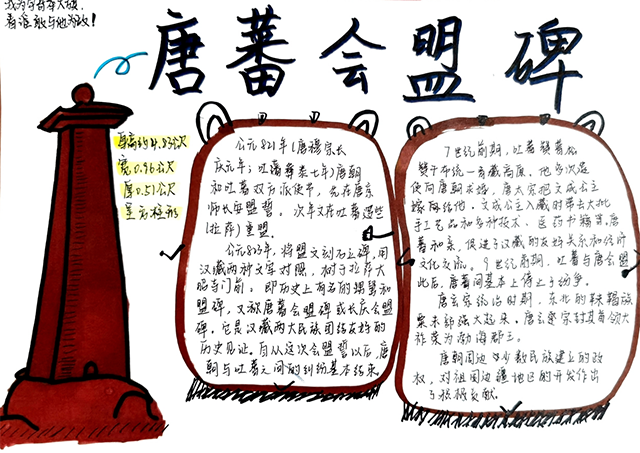 我为守吾辛大旗，
看谁敢与他为敌！
唐蕃会盟碑
石高约4.83公尺
宽0.96公尺
厚0.51公尺
呈石柱形
公元821年（唐穆宗长
庆元年；吐蕃彝泰七年）唐朝
和吐蕃双方派使节，先在唐京
师长安盟誓，次年又在吐蕃逻些
（拉萨）重盟。
公元823年，将盟文刻石立碑，用
汉藏两种文字对照，树于拉萨大
昭寺门前，即历史上有名的甥舅和
盟碑，又称唐蕃会盟碑或长庆会盟
碑。它是汉藏两大民族团结友好的
历史见证。自从这次会盟誓以后，唐
朝与吐蕃之间的纠纷基本结束
7世纪前期，吐蕃赞普松
赞干布统一青藏高原。他多次遣
使向唐朝求婚，唐太宗把文成公主
嫁给他。文成公主入藏时带去大批
手工艺品和多种技术、医药书籍等。唐
蕃和亲，促进了汉藏的友好关系和经济
文化交流。9世纪前期，吐蕃与唐会盟
此后，唐蕃间基本上停止了纷争。
唐玄宗统治时期，东北的靺鞨族
粟末部强大起来。唐玄宗封其首领大
祚荣为渤海郡王。
唐朝周边少数民族建立的政
权，对祖国边疆地区的开发作出
了积极贡献。